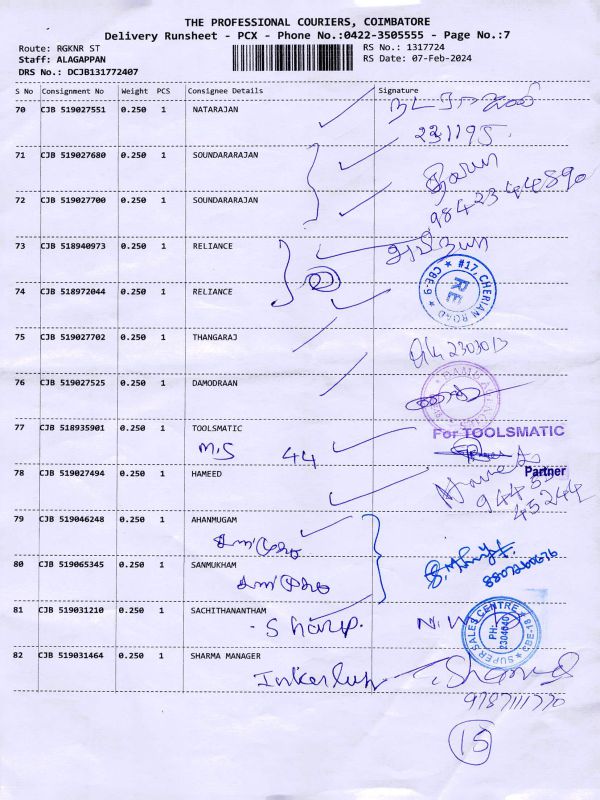 THE PROFESSIONAL COURIERS, COIMBATORE
Delivery Runsheet - PCX - Phone No.:0422-3505555 - Page No.:7
Route: RGKNR ST RS No.: 1317724
Staff: ALAGAPPAN RS Date: 07-Feb-2024
DRS No.: DCJB131772407
S No Consignment No Weight PCS Consignee Details Signature
70 CJB 519027551 0.250 1 NATARAJAN
231195
71 CJB 519027680 0.250 1 SOUNDARARAJAN
72 CJB 519027700 0.250 1 SOUNDARARAJAN
9842344890
73 CJB 518940973 0.250 1 RELIANCE
#17, CHERIAN ROAD ★ CBE-9 ★
RE
74 CJB 518972044 0.250 1 RELIANCE
75 CJB 519027702 0.250 1 THANGARAJ
2303013
76 CJB 519027525 0.250 1 DAMODRAAN
77 CJB 518935901 0.250 1 TOOLSMATIC
For TOOLSMATIC
M.S 44
Partner
78 CJB 519027494 0.250 1 HAMEED
45244
79 CJB 519046248 0.250 1 AHANMUGAM
80 CJB 519065345 0.250 1 SANMUKHAM
81 CJB 519031210 0.250 1 SACHITHANANTHAM
Sharp.
SUPER SALES CENTRE ★ CBE-18 ★
PH: 2304040
82 CJB 519031464 0.250 1 SHARMA MANAGER
9787111770
15